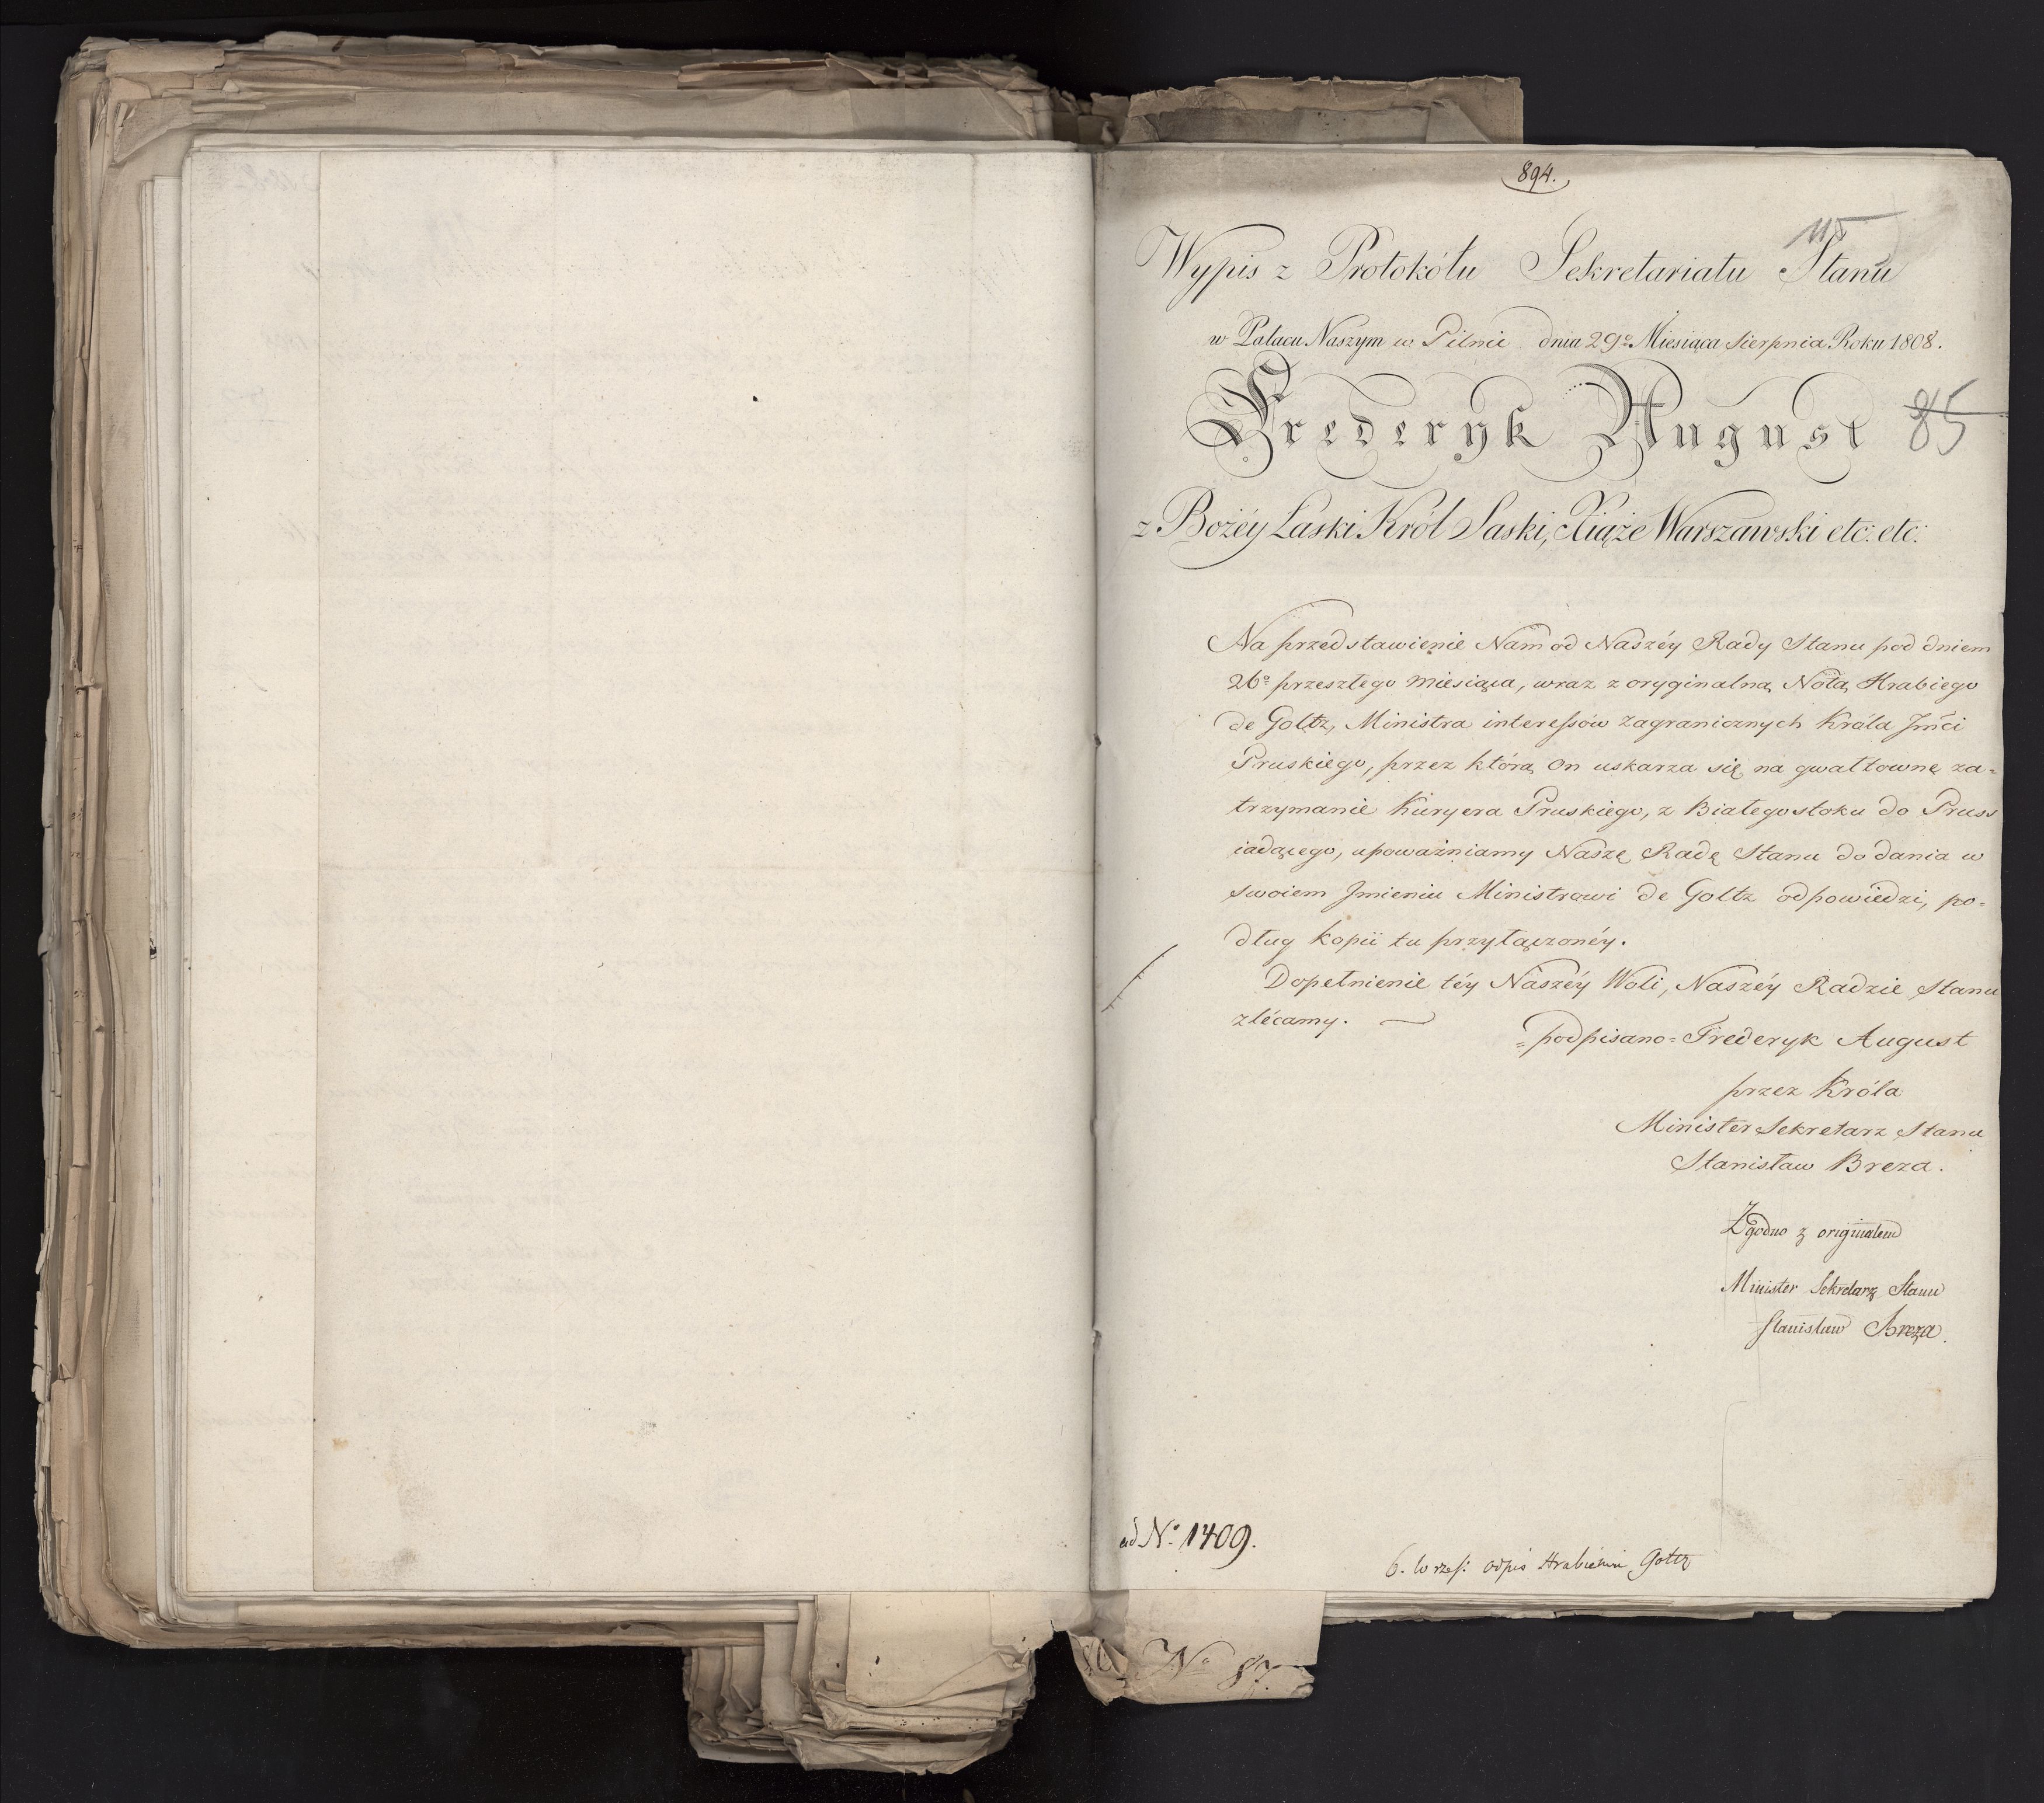 894.
115
Wypis z Protokółu Sekretariatu Stanu
w Pałacu Naszym w Pilnie dnia 29º Miesiąca Sierpnia Roku 1808.
Frederyk August
85
z Bożéy Łaski Król Saski, Xiąże Warszawski etc: etc:
Na przedstawienie Nam od Naszéy Rady Stanu pod dniem
26º przeszłego miesiąca, wraz z oryginalną Notą Hrabiego
de Goltz, Ministra interessów zagranicznych Króla Jmći
Pruskiego, przez którą on uskarza się na gwałtownę za=
trzymanie Kuryera Pruskiego, z Białegostoku do Pruss
iadącego, upoważniamy Naszę Radę Stanu do dania w
swoiem Jmieniu Ministrowi de Goltz odpowiedzi, po=
dług kopii tu przyłączonéy.
Dopełnienie téy Naszéy Woli, Naszéy Radzie Stanu
zlécamy.
=podpisano= Frederyk August
przez Króla
Minister Sekretarz Stanu
Stanisław Breza.
Zgodno z originałem
Minister Sekretarz Stanu
Stanisław Breza.
ad Nº 1409.
6. Wrześ: odpis Hrabiemu Goltz
Nº 87.